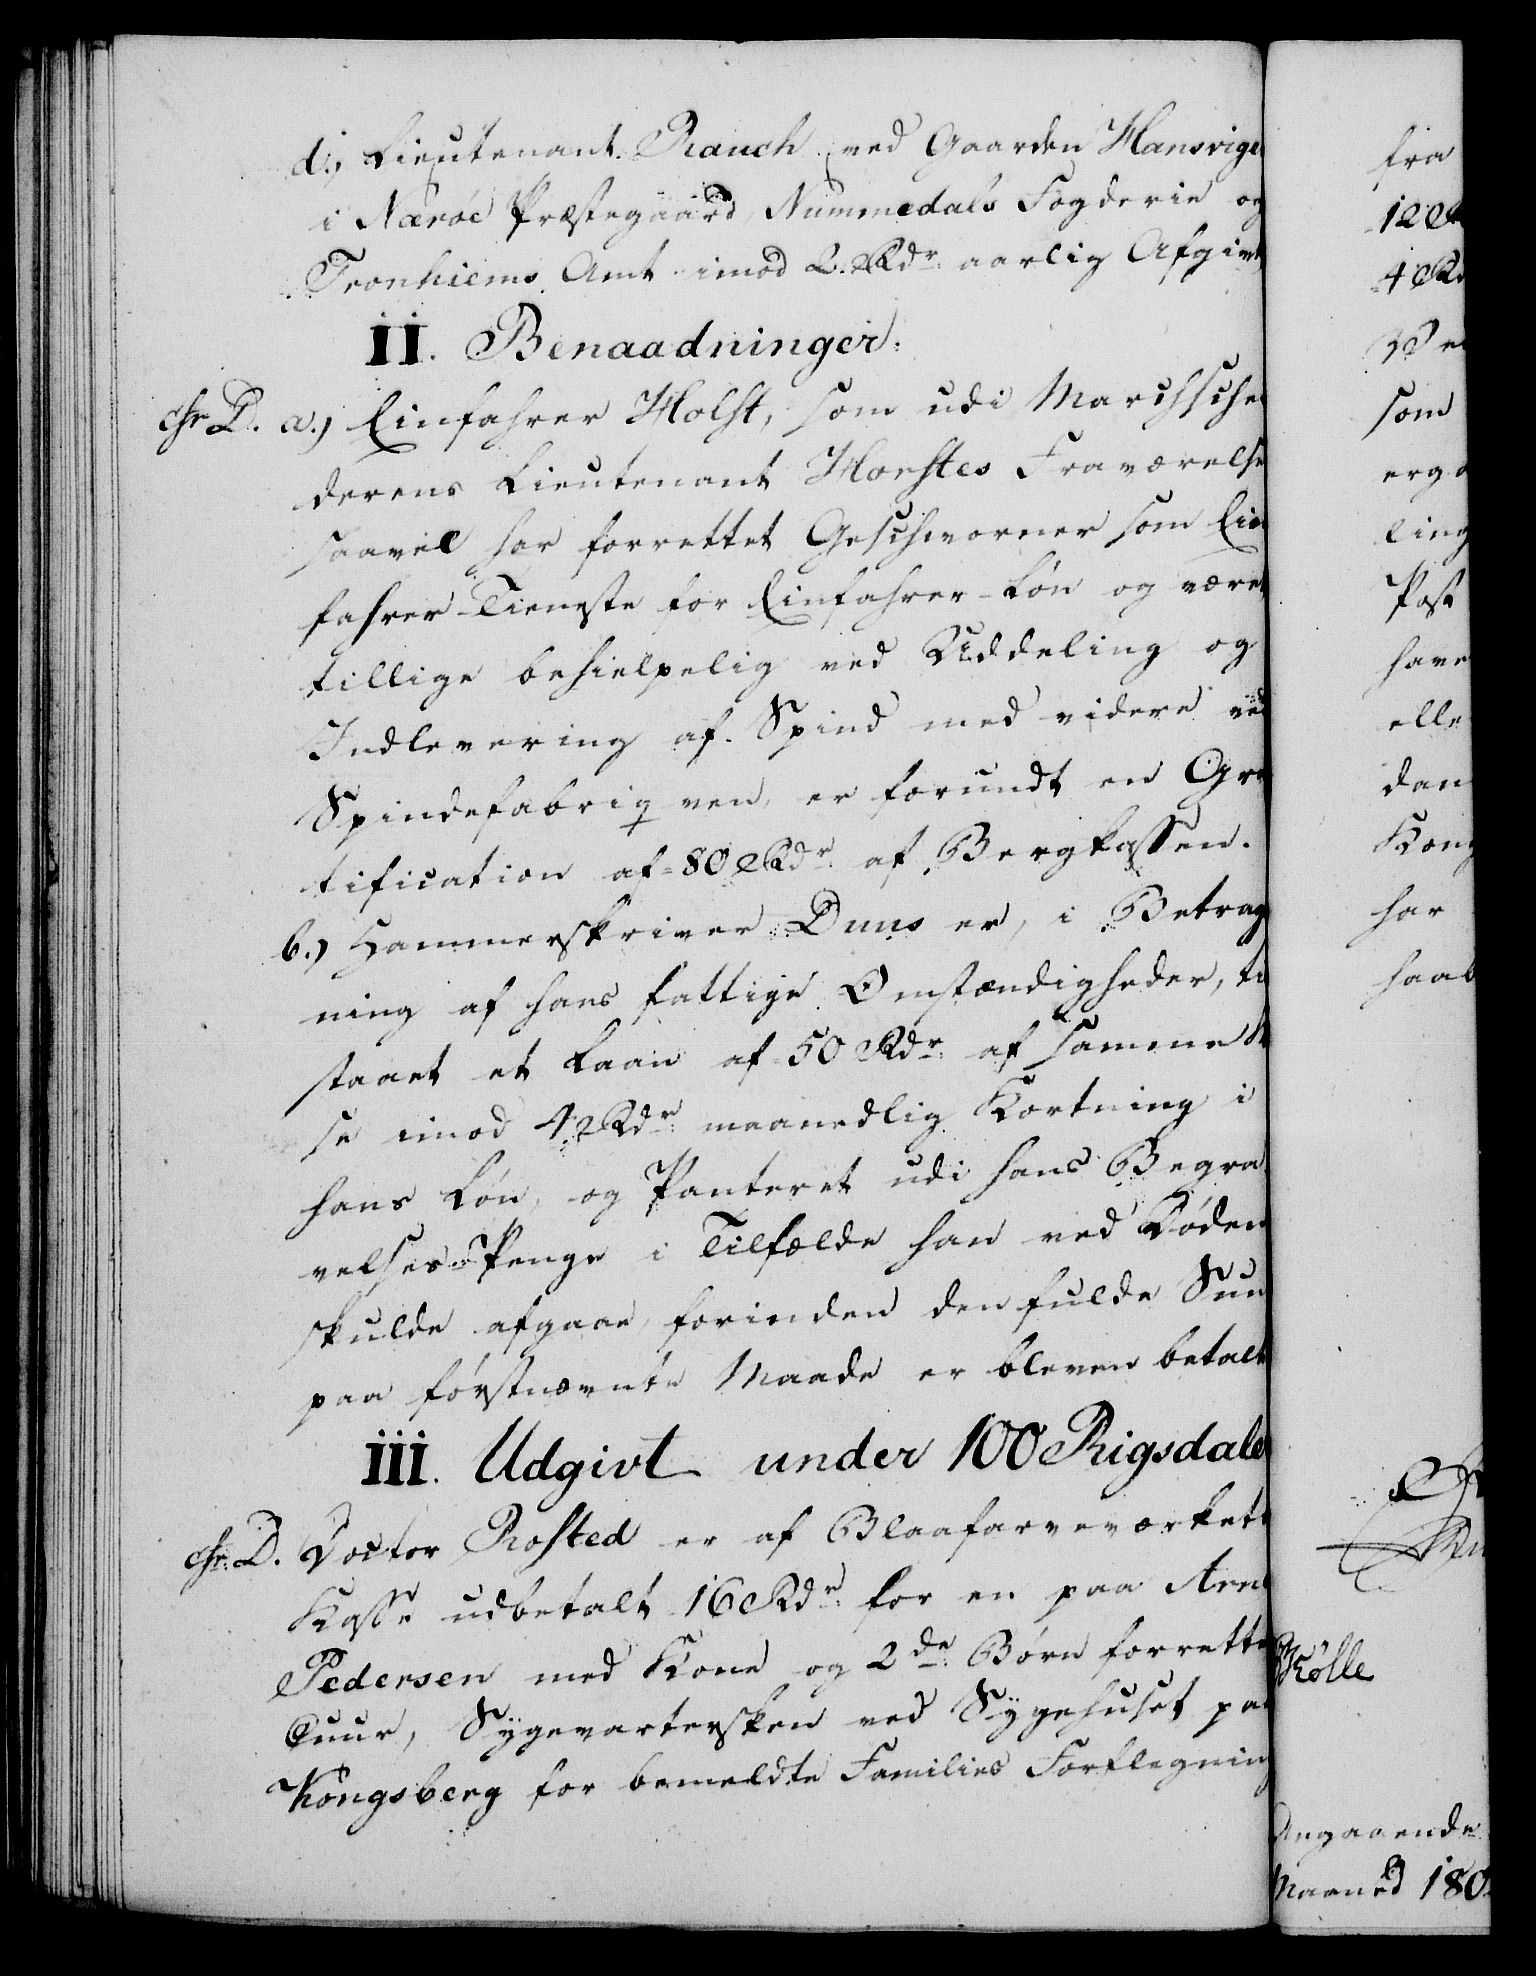 d., Lieutenant Rauch ved Gaarden Hansvige
i Nærøe Præstegaard, Nummedals Fogderie og
Tronhiems Amt imod 2 Rdr aarlig Afgivt,
II. Benaadninger.
chr. D. a.) Einfahrer Holst, som udi Marchsche
derens Lieutenant Horstes Fraværelse
saavel har forrettet Geschworner som Ein
fahrer Tieneste for Einfahrer-Løn og været
tillige behielpelig ved Uddeling og
Indlevering af Spind med videre ved
Spindefabriqven, er forundt en Gra
tification af 80 Rdr af Bergkassen.
b.) Hammerskriver Duus er, i Betrag
ning af hans fattige Omstændigheder, til
staaet et Laan af 50 Rdr af samme
se imod 4 Rdr maanedlig Kortning i
hans Løn, og Panteret udi hans Begra
velses-Penge i Tilfælde han ved Døden
skulde afgaae, forinden den fulde Sum
paa førstnævnte Maade er bleven betalt
III. Udgivt under 100 Rigsdale
chr. D. Doctor Rosted er af Blaafarveværkets
Kasse udbetalt 16 Rdr for en paa Arne
Pedersen med Kone og 2de Børn forrettet
Cuur, Sygevartersken ved Sygehuset paa
Kongsberg for bemeldte Families Forflegning
fra
12
4 Rd
som
erga
ling
Post
have
elle
dan
Kong
har
haab
Kølle
Angaaende
Maaned 180